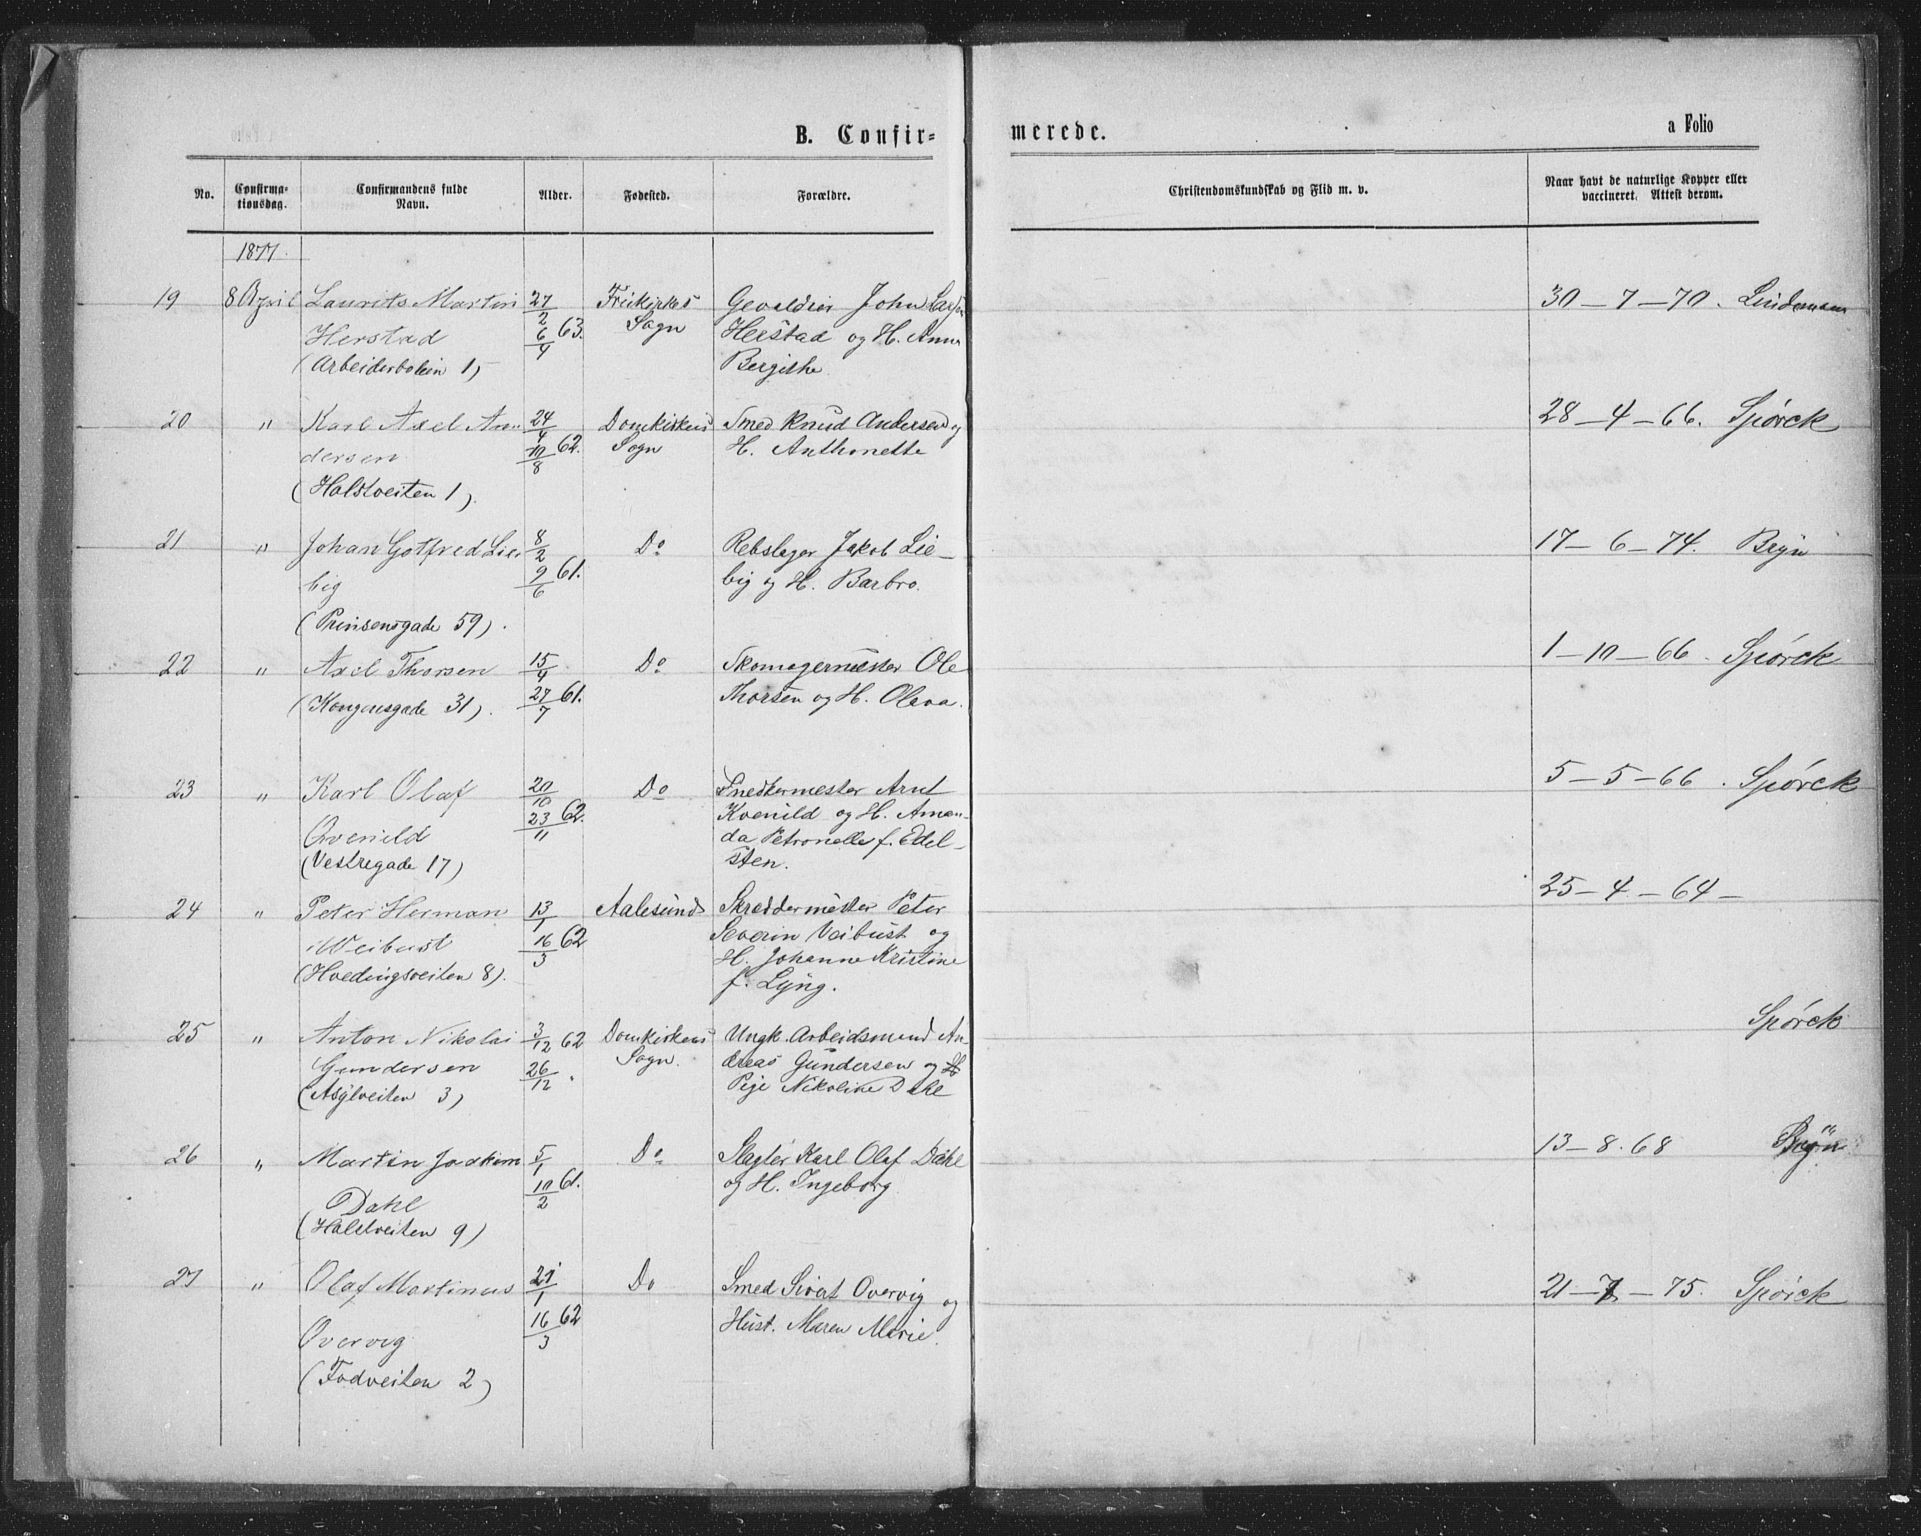 B. Confir=
merede.
a Folio
No.
Confirma-
tionsdag.
Confirmandens fulde
Navn.
Alder.
Fødested.
Forældre.
Christendomskundskab og Flid m. v.
Naar havt de naturlige Kopper eller
vaccineret. Attest derom.
1877.
19 8 April Laurits Martin 27/2 Frikirkes Gevaldier John
Herstad 6/4 63. Sogn Herstad og H. Anna
(Arbeiderbolein 1) Bergithe
30-7-70. Lindemann
20 " Karl Axel An 24/4 Domkirkens Smed Knud Andersen og
dersen 10/8 62. Sogn H. Anthonette
(Halstveiten 1).
28-4-66. Spörck
21 " Johan Gotfred Lie 8/2 Do Rebslager Jakob Lie-
big 9/6 61. big og H. Barbro.
(Prinsensgade 59).
17-6-74. Bryn
22 " Axel Thorsen 15/4 Do Skomagermester Ole
(Kongensgade 31). 27/7 61. Thorsen og H. Oleva.
1-10-66. Spörck
23 " Karl Olaf 20/10 Do Snedkermester Arnt
Qvenild 23/11 62. Kvenild og H. Aman-
(Vestregade 17) da Petronelle f. Edel-
sten.
5-5-66. Spörck
24 " Peter Herman 13/1 Aalesund Skreddermester Peter
Weibust 16/3 62 Severin Veibust og
(Hvedingsveiten 8). H. Johanne Kristine
f. Lyng.
25-4-64-
25 " Anton Nikolai 3/12 62 Domkirkens Ungk. Arbeidsmand An-
Gundersen 26/12 " Sogn. dreas Gundersen og
(Asylveiten 3) Pige Nikoline Dahl
Spörck
26 " Martin Joakim 5/1 Do Slagter Karl Olaf Dahl
Dahl 10/2 61. og H. Ingeborg
(Halstveiten 9)
13-8.68 Bryn
27 " Olaf Martinus 21/1 Do Smed Sivert Overvig og
Overvig 16/3 62 Hust. Maren Marie.
(Fodveiten 2)
21-7-75. Spörck